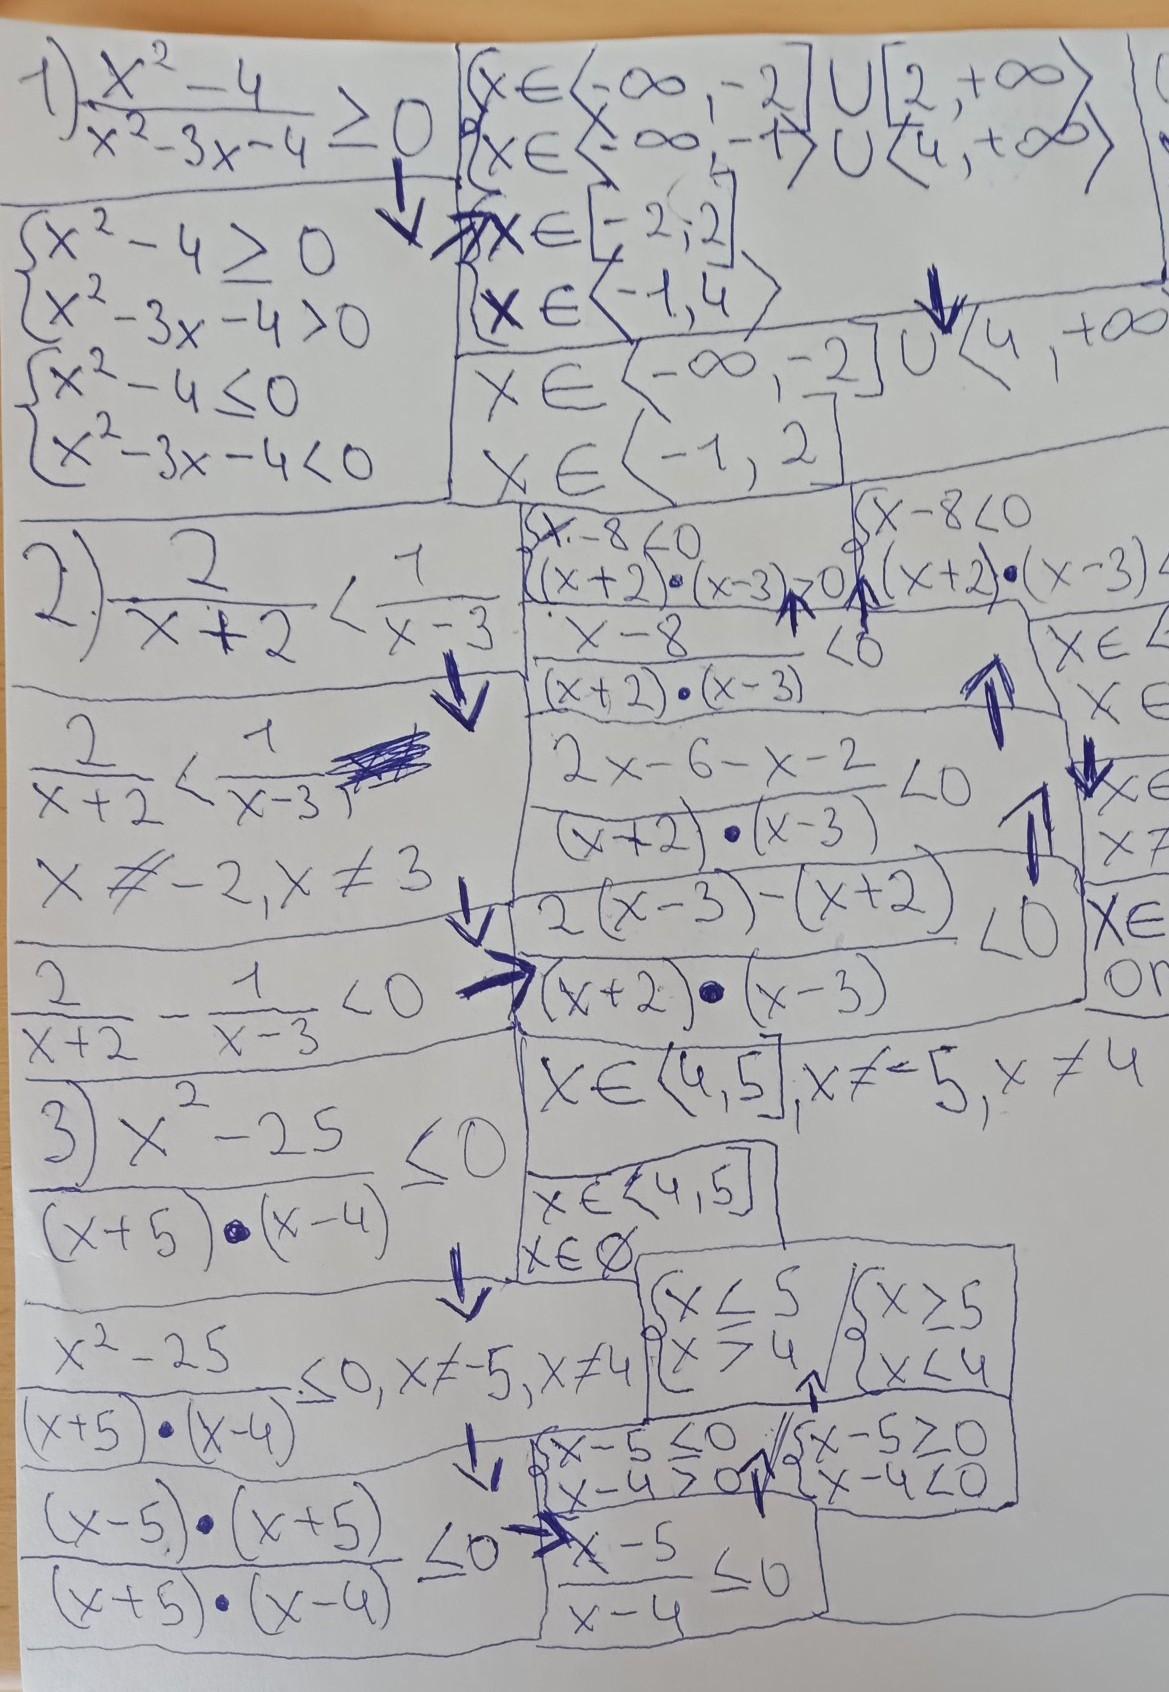 1) x² - 4 / x² - 3x - 4 ≥ 0
{x² - 4 ≥ 0
{x² - 3x - 4 > 0
{x² - 4 ≤ 0
{x² - 3x - 4 < 0
{x ∈ ⟨-∞, -2] ∪ [2, +∞⟩
{x ∈ ⟨-∞, -1⟩ ∪ ⟨4, +∞⟩
{x ∈ [-2, 2]
{x ∈ ⟨-1, 4⟩
x ∈ ⟨-∞, -2] ∪ ⟨4, +∞
x ∈ ⟨-1, 2]
2.) 2 / x + 2 < 1 / x - 3
2 / x + 2 < 1 / x - 3,
x ≠ -2, x ≠ 3
2 / x + 2 - 1 / x - 3 < 0
2(x - 3) - (x + 2) / (x + 2) • (x - 3) < 0
2x - 6 - x - 2 / (x + 2) • (x - 3) < 0
x - 8 / (x + 2) • (x - 3) < 0
{x - 8 < 0
{(x + 2) • (x - 3) > 0
{x - 8 < 0
(x + 2) • (x - 3) <
x ∈
x ∈
x ∈
x ≠
x ∈
3) x² - 25 / (x + 5) • (x - 4) ≤ 0
x² - 25 / (x + 5) • (x - 4) ≤ 0, x ≠ -5, x ≠ 4
(x - 5) • (x + 5) / (x + 5) • (x - 4) ≤ 0
x - 5 / x - 4 ≤ 0
{x - 5 ≤ 0 // {x - 5 ≥ 0
{x - 4 > 0 {x - 4 < 0
{x ≤ 5 / {x ≥ 5
{x > 4 {x < 4
x ∈ ⟨4, 5]
x ∈ ∅
x ∈ ⟨4, 5], x ≠ -5, x ≠ 4